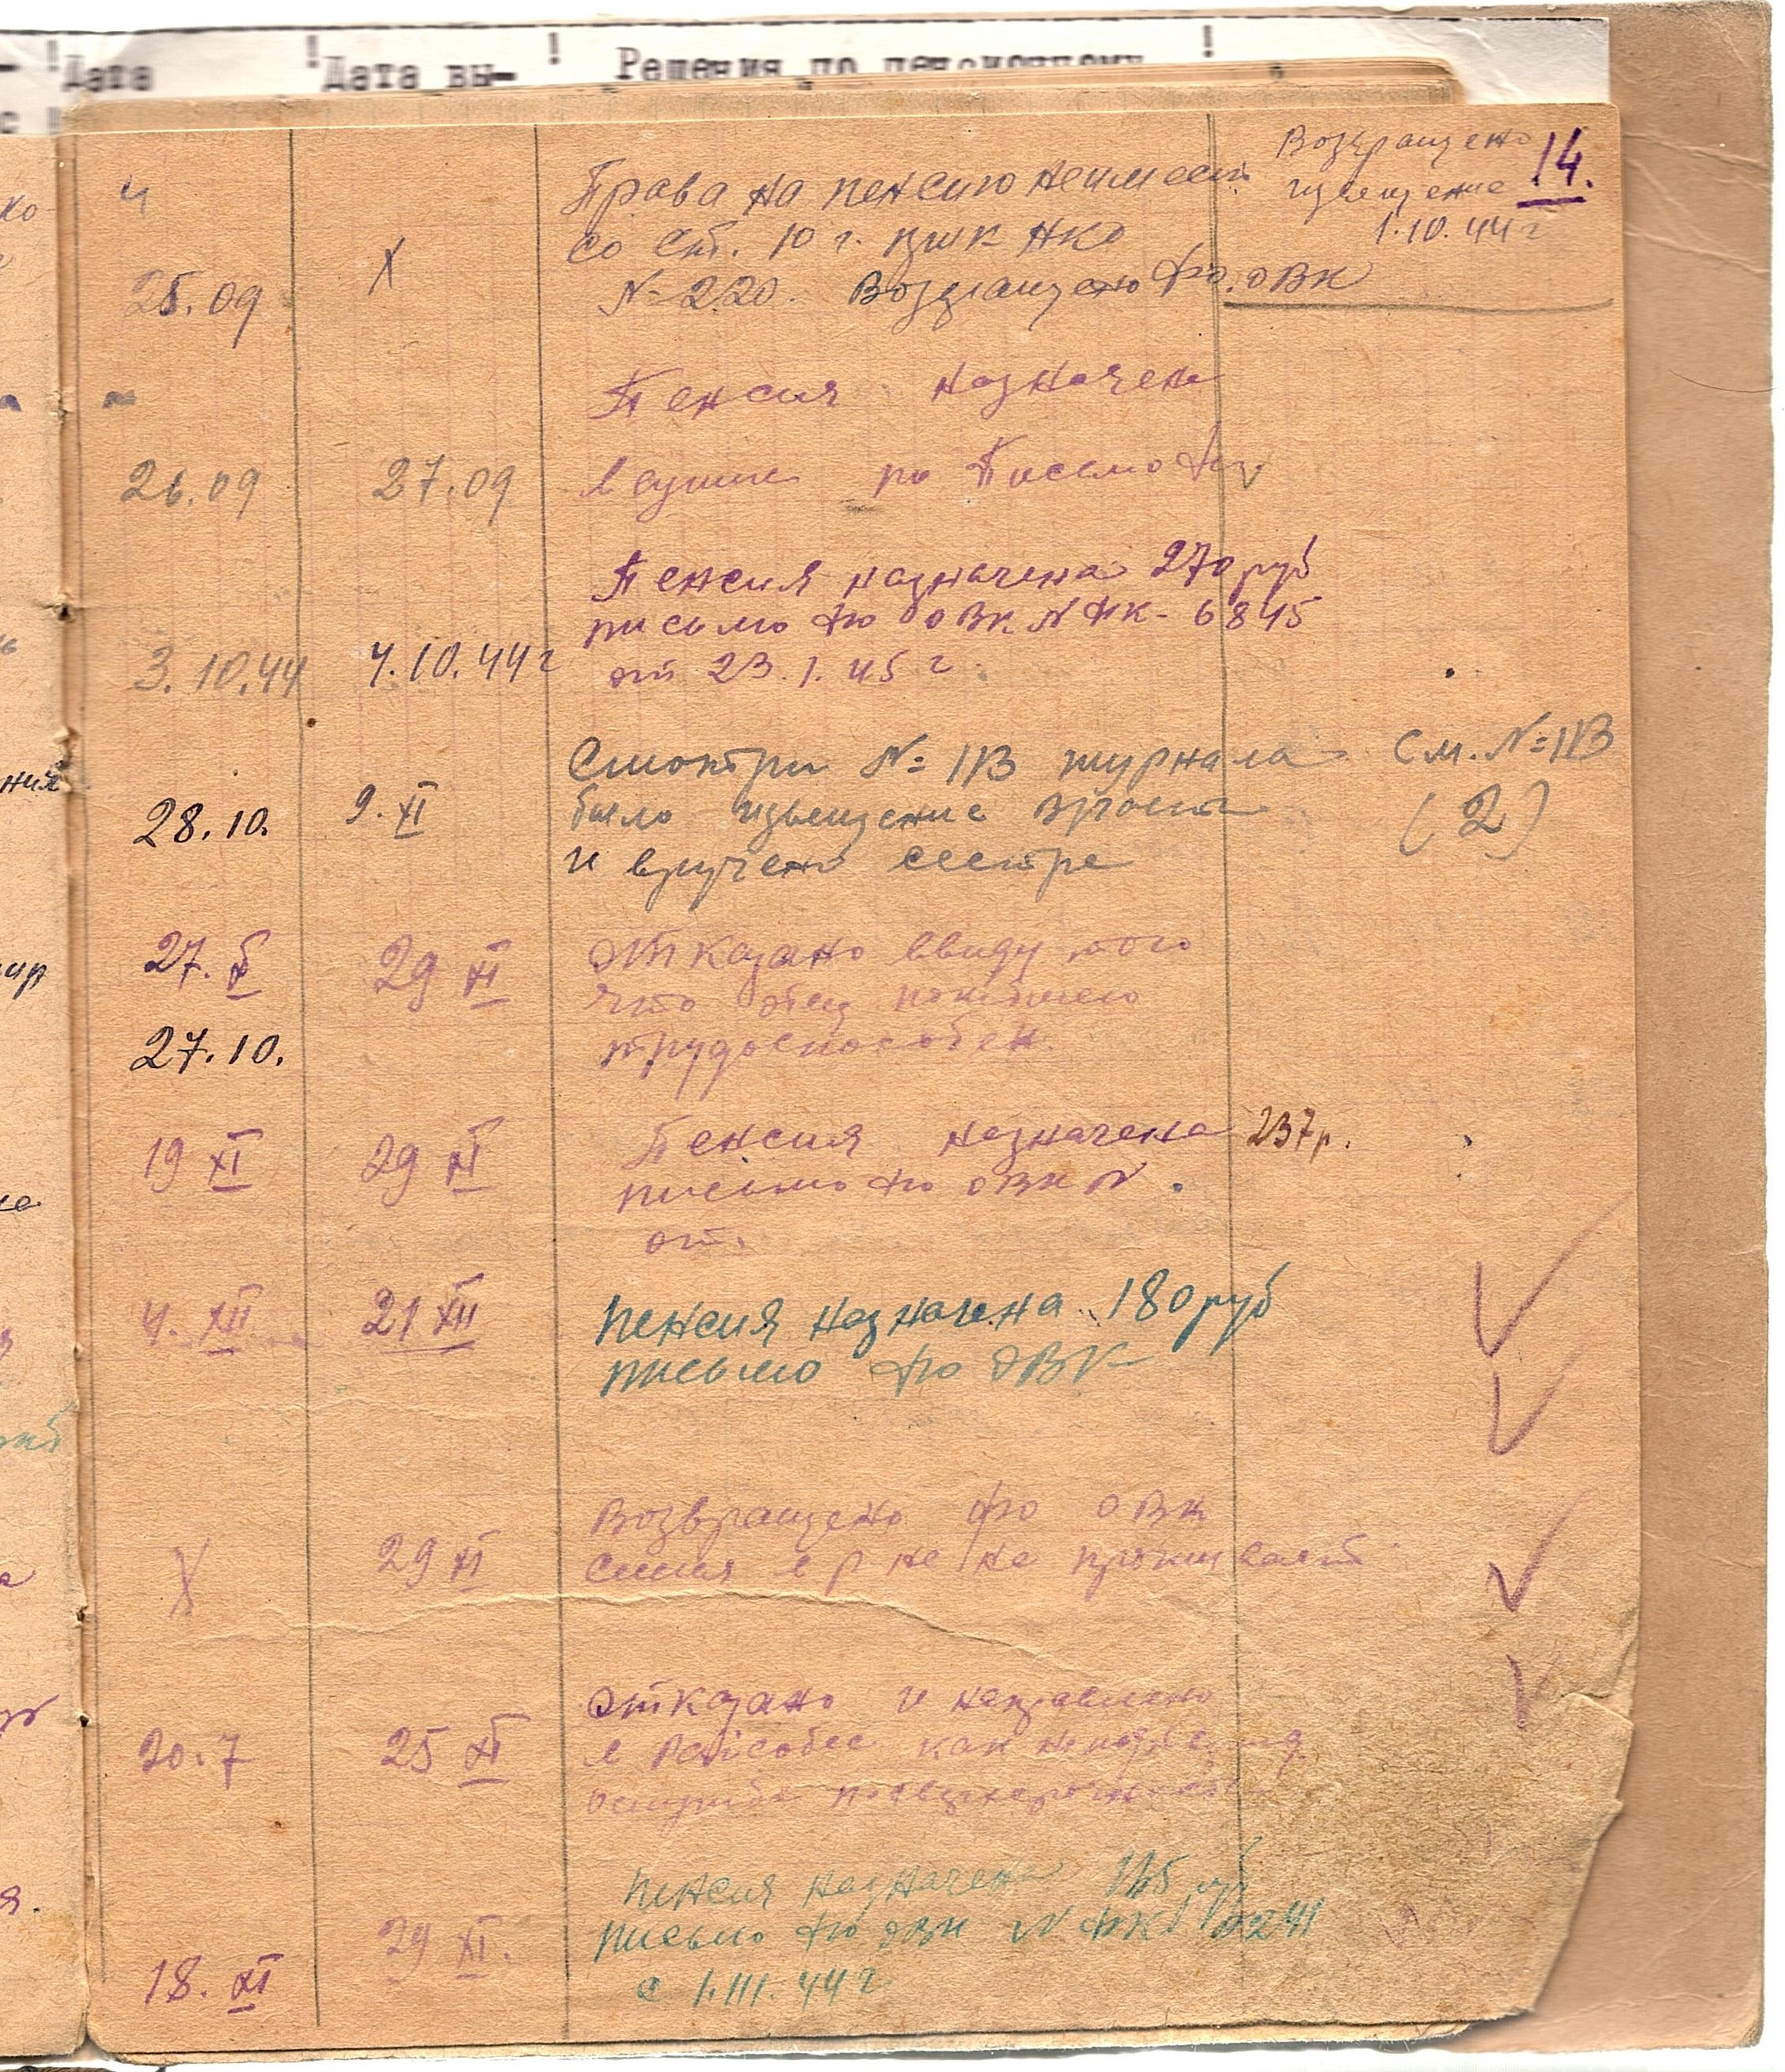 Дата
Дата вы-
Решения по пенсионному
14.
Возвращено
извещение
1.10.44 г
Ч
25.09
Х
Права на пенсию не имеет
со ст. 10 г. НКО
№ 220. Возвращено ф.о. ОВК
Пенсия назначена
26.09
27.09
по Письмо
Пенсия назначена 270 руб
письмо ФО ОВК № ФК-6845
3.10.44
4.10.44 г
от 23.1.45 г.
Смотри № 113 журнала
См. № 113
28.10.
9. XI
было извещение
(2)
и вручено сестре
27. X
29 XI
Отказано ввиду того
что отец погибшего
27.10.
трудоспособен.
19 XI
29 XI
Пенсия назначена 237 р.
письмо ФО ОВК №
от.
4. XII
21 XII
Пенсия назначена 180 руб
письмо ФО ОВК
Возвращено ФО ОВК
Х
29 XI
семья в р-не не проживает
Отказано и направлено
20.7
25 XI
в Райсобес как
Пенсия назначена 145 руб
29 XI.
письмо ФО ОВК № ФК
18. XI
с 1.III.44 г